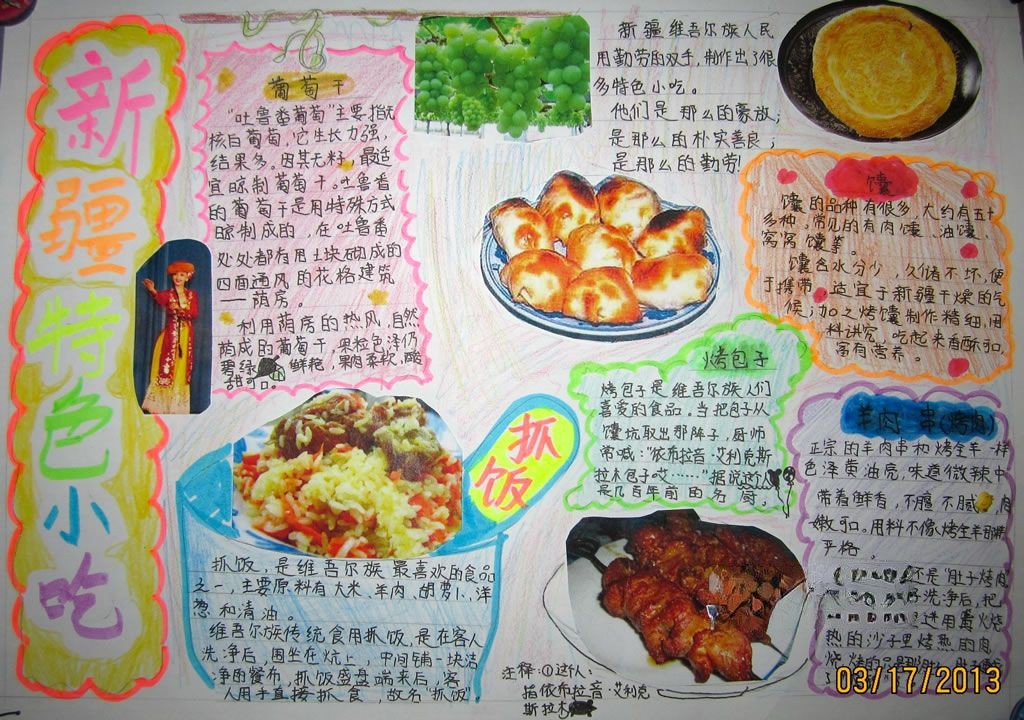 新疆特色小吃
葡萄干
“吐鲁番葡萄”主要指无
核白葡萄，它生长力强，
结果多。因其无籽，最适
宜晾制葡萄干。吐鲁番
的葡萄干是用特殊方式
晾制成的，在吐鲁番
处处都有用土块砌成的
四面通风的花格建筑
——荫房。
利用荫房的热风，自然
荫成的葡萄干，果粒色泽仍
碧绿鲜艳，果肉柔软，酸
甜可口。
新疆维吾尔族人民
用勤劳的双手，制作出了很
多特色小吃。
他们是那么的豪放；
是那么的朴实善良；
是那么的勤劳！
馕
馕的品种有很多，大约有五十
多种，常见的有肉馕、油馕、
窝窝馕等。
馕含水分少，久储不坏，便
于携带，适宜于新疆干燥的气
候；加之烤馕制作精细，用
料讲究，吃起来香酥可口，
富有营养。
烤包子
烤包子是维吾尔族人们
喜爱的食品。当把包子从
馕坑取出那阵子，厨师
常喊：“依布拉音·艾利克斯
拉木包子哎……”据说这人
是几百年前的名厨。
羊肉串(烤肉)
正宗的羊肉串和烤全羊一样
色泽黄油亮，味道微辣中
带着鲜香，不腻不膻，肉
嫩可口。用料不像烤全羊那样
严格。
还是“肚子烤肉
洗净后，把
进用火烧
热的沙子里烤熟的肉
抓饭
抓饭，是维吾尔族最喜欢的食品
之一，主要原料有大米、羊肉、胡萝卜、洋
葱和清油。
维吾尔族传统食用抓饭，是在客人
洗净后，围坐在炕上，中间铺一块洁
净的餐布，抓饭盛盘端来后，客
人用手直接抓食，故名“抓饭”。
注释：①这人：
指依布拉音·艾利克
斯拉木
03/17/2013